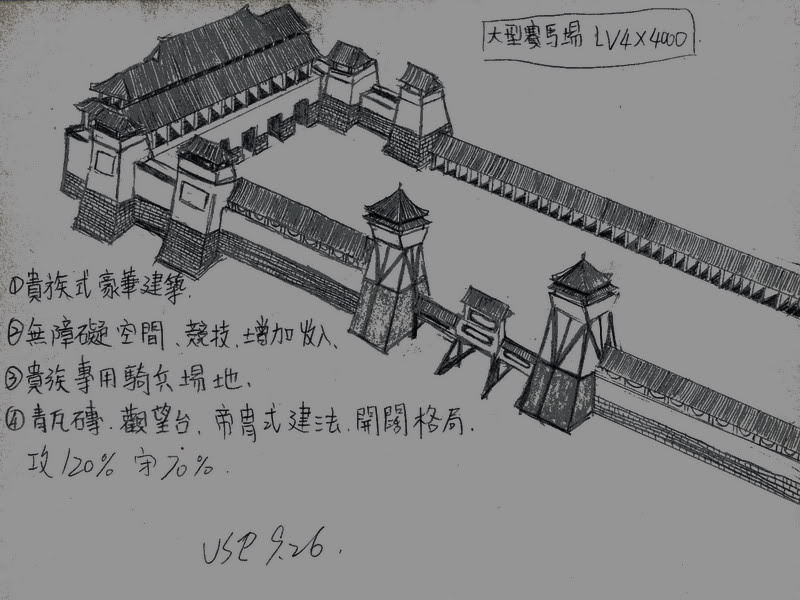 大型賽馬場 LV4×4000
①貴族式豪華建築.
②無障礙空間、競技、增加收入、
③貴族專用騎兵場地.
④青瓦磚.觀望台.帝胄式建法.開闊格局.
攻120% 守70%.
USP 9.26.